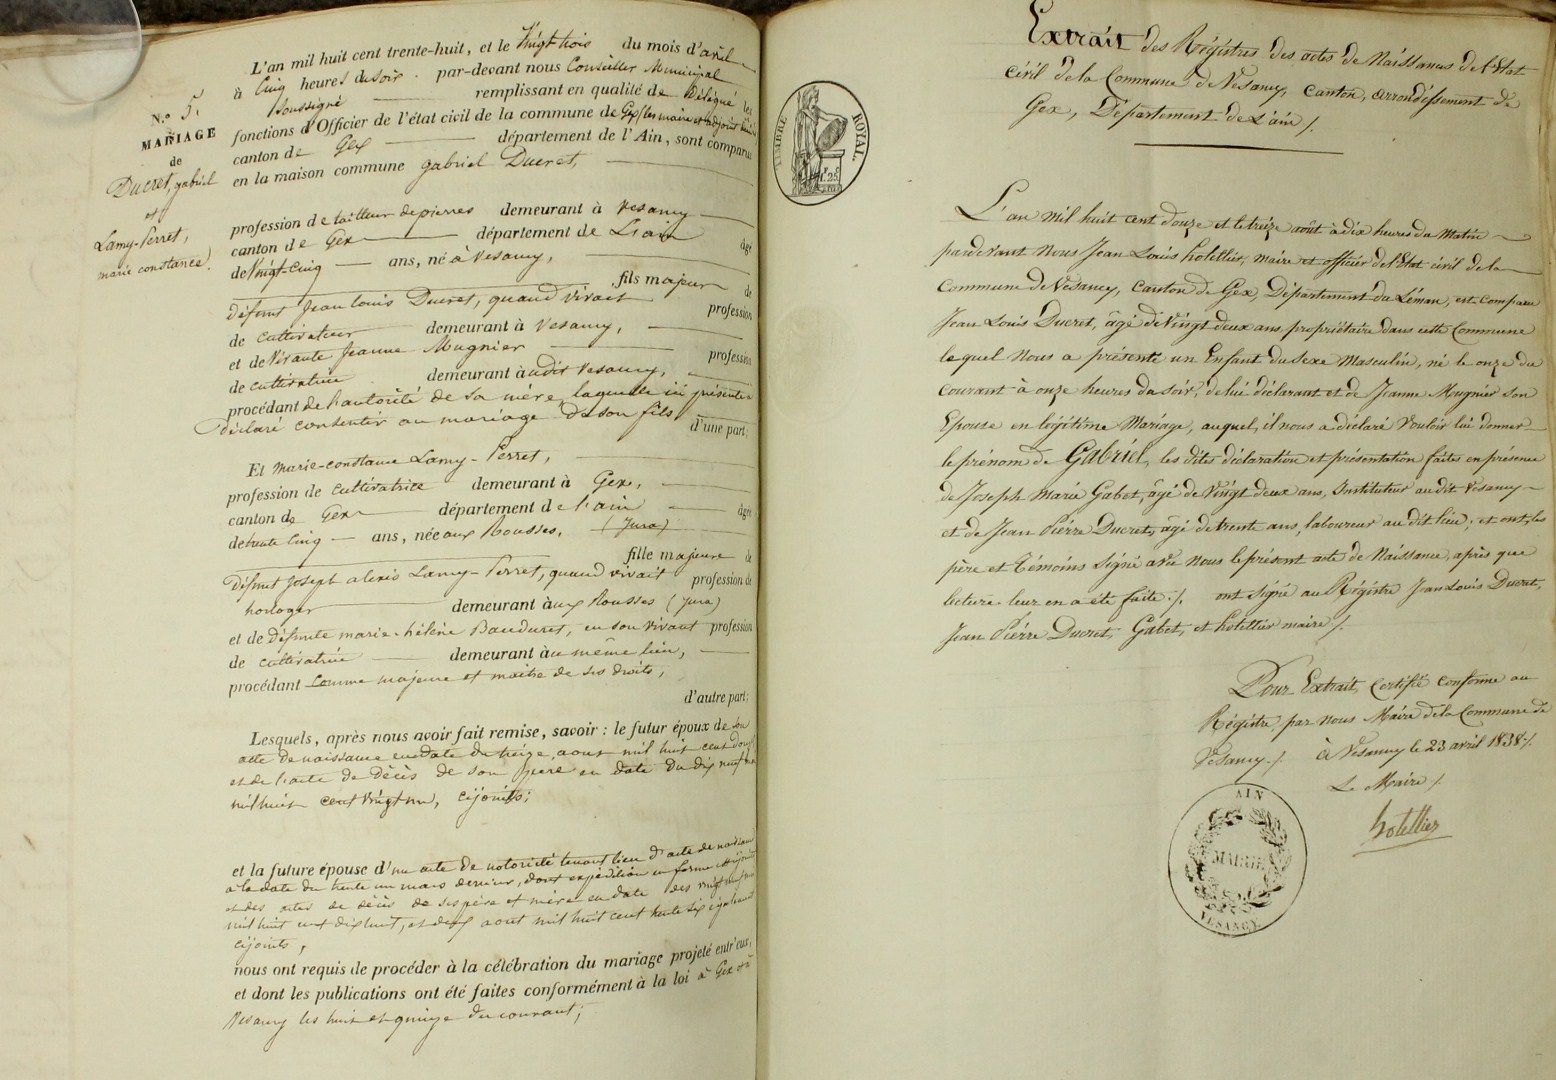 N.º 5.
MARIAGE
de
Ducret, gabriel
et
Lamy-Perret,
marie constance.
L'an mil huit cent trente-huit, et le vingt trois du mois d'avril
à Cinq heures du soir par-devant nous Conseiller Municipal
soussigné remplissant en qualité de Délégué les
fonctions d'Officier de l'état civil de la commune de Gex, les maire et adjoint
canton de Gex département de l'Ain, sont comparus
en la maison commune gabriel Ducret,
profession de tailleur de pierres demeurant à Vesancy
canton de Gex département de L'ain âgé
de Vingt-Cinq ans, né à Vesancy,
fils majeur de
défunt Jean louis Ducret, quand vivait profession
de cultivateur demeurant à Vesancy,
et de Vivante Jeanne Mugnier profession
de cultivatrice demeurant audit Vesancy,
procédant de l'autorité de sa mère, laquelle ici présente a
déclaré consentir au mariage de son fils d'une part;
Et marie-constance Lamy-Perret,
profession de cultivatrice demeurant à Gex,
canton de Gex département de l'ain âgée
de trente Cinq ans, née aux Rousses, (Jura)
fille majeure de
défunt Joseph alexis Lamy-Perret, quand vivait profession de
horloger demeurant aux Rousses (Jura)
et de défunte marie-hélène Bauduret, en son vivant profession
de cultivatrice demeurant au même lieu,
procédant comme majeure et maitre de ses droits,
d'autre part;
Lesquels, après nous avoir fait remise, savoir : le futur époux de son
acte de naissance en date du treize aout mil huit cent douze
et de l'acte de décès de son père en date du dix neuf
mil huit cent vingt un, cijoints;
et la future épouse d'un acte de notoriété tenant lieu d'acte de naissance
a la date du trente un mars dernier, dont expédition en forme
et des actes de décès de ses père et mère en date des vingt
mil huit cent dix huit, et deux aout mil huit cent trente six également
cijoints,
nous ont requis de procéder à la célébration du mariage projeté entr'eux,
et dont les publications ont été faites conformément à la loi à Gex et à
Vesancy les huit et quinze du courant;
TIMBRE ROYAL.
1.F 25C
Extrait des Régistres des actes de Naissances de l'Etat
civil de la Commune de Vesancy, canton, arrondissement de
Gex, Département de L'ain /.
L'an mil huit cent douze et le treize août à dix heures du Matin
pardevant Nous Jean Louis hotellier, maire et officier de l'Etat civil de la
Commune de Vesancy, canton de Gex, Département du Léman, est comparu
Jean Louis Ducret, âgé de Vingt deux ans, propriétaire dans cette Commune
lequel Nous a présenté un Enfant du Sexe Masculin, né le onze du
courant à onze heures du soir, de lui déclarant et de Jeanne Mugnier son
Epouse en légitime Mariage, auquel, il nous a déclaré Vouloir lui donner
le prénom de Gabriel, les dites déclaration et présentation faites en présence
de Joseph Marie Gabet, âgé de Vingt deux ans, Instituteur au dit Vesancy
et de Jean Pierre Ducret, âgé de trente ans, laboureur au dit lieu; et ont, les
père et témoins signé avec Nous le présent acte de Naissance, après que
lecture leur en a été faite :/. ont signé au Régistre Jean Louis Ducret,
Jean Pierre Ducret, Gabet, et hotellier maire /.
Pour Extrait, certifié conforme au
Régistre, par nous Maire de la Commune de
Vesancy./. à Vesancy le 23 avril 1838./.
Le Maire /.
hotellier
AIN
MAIRIE
VESANCY